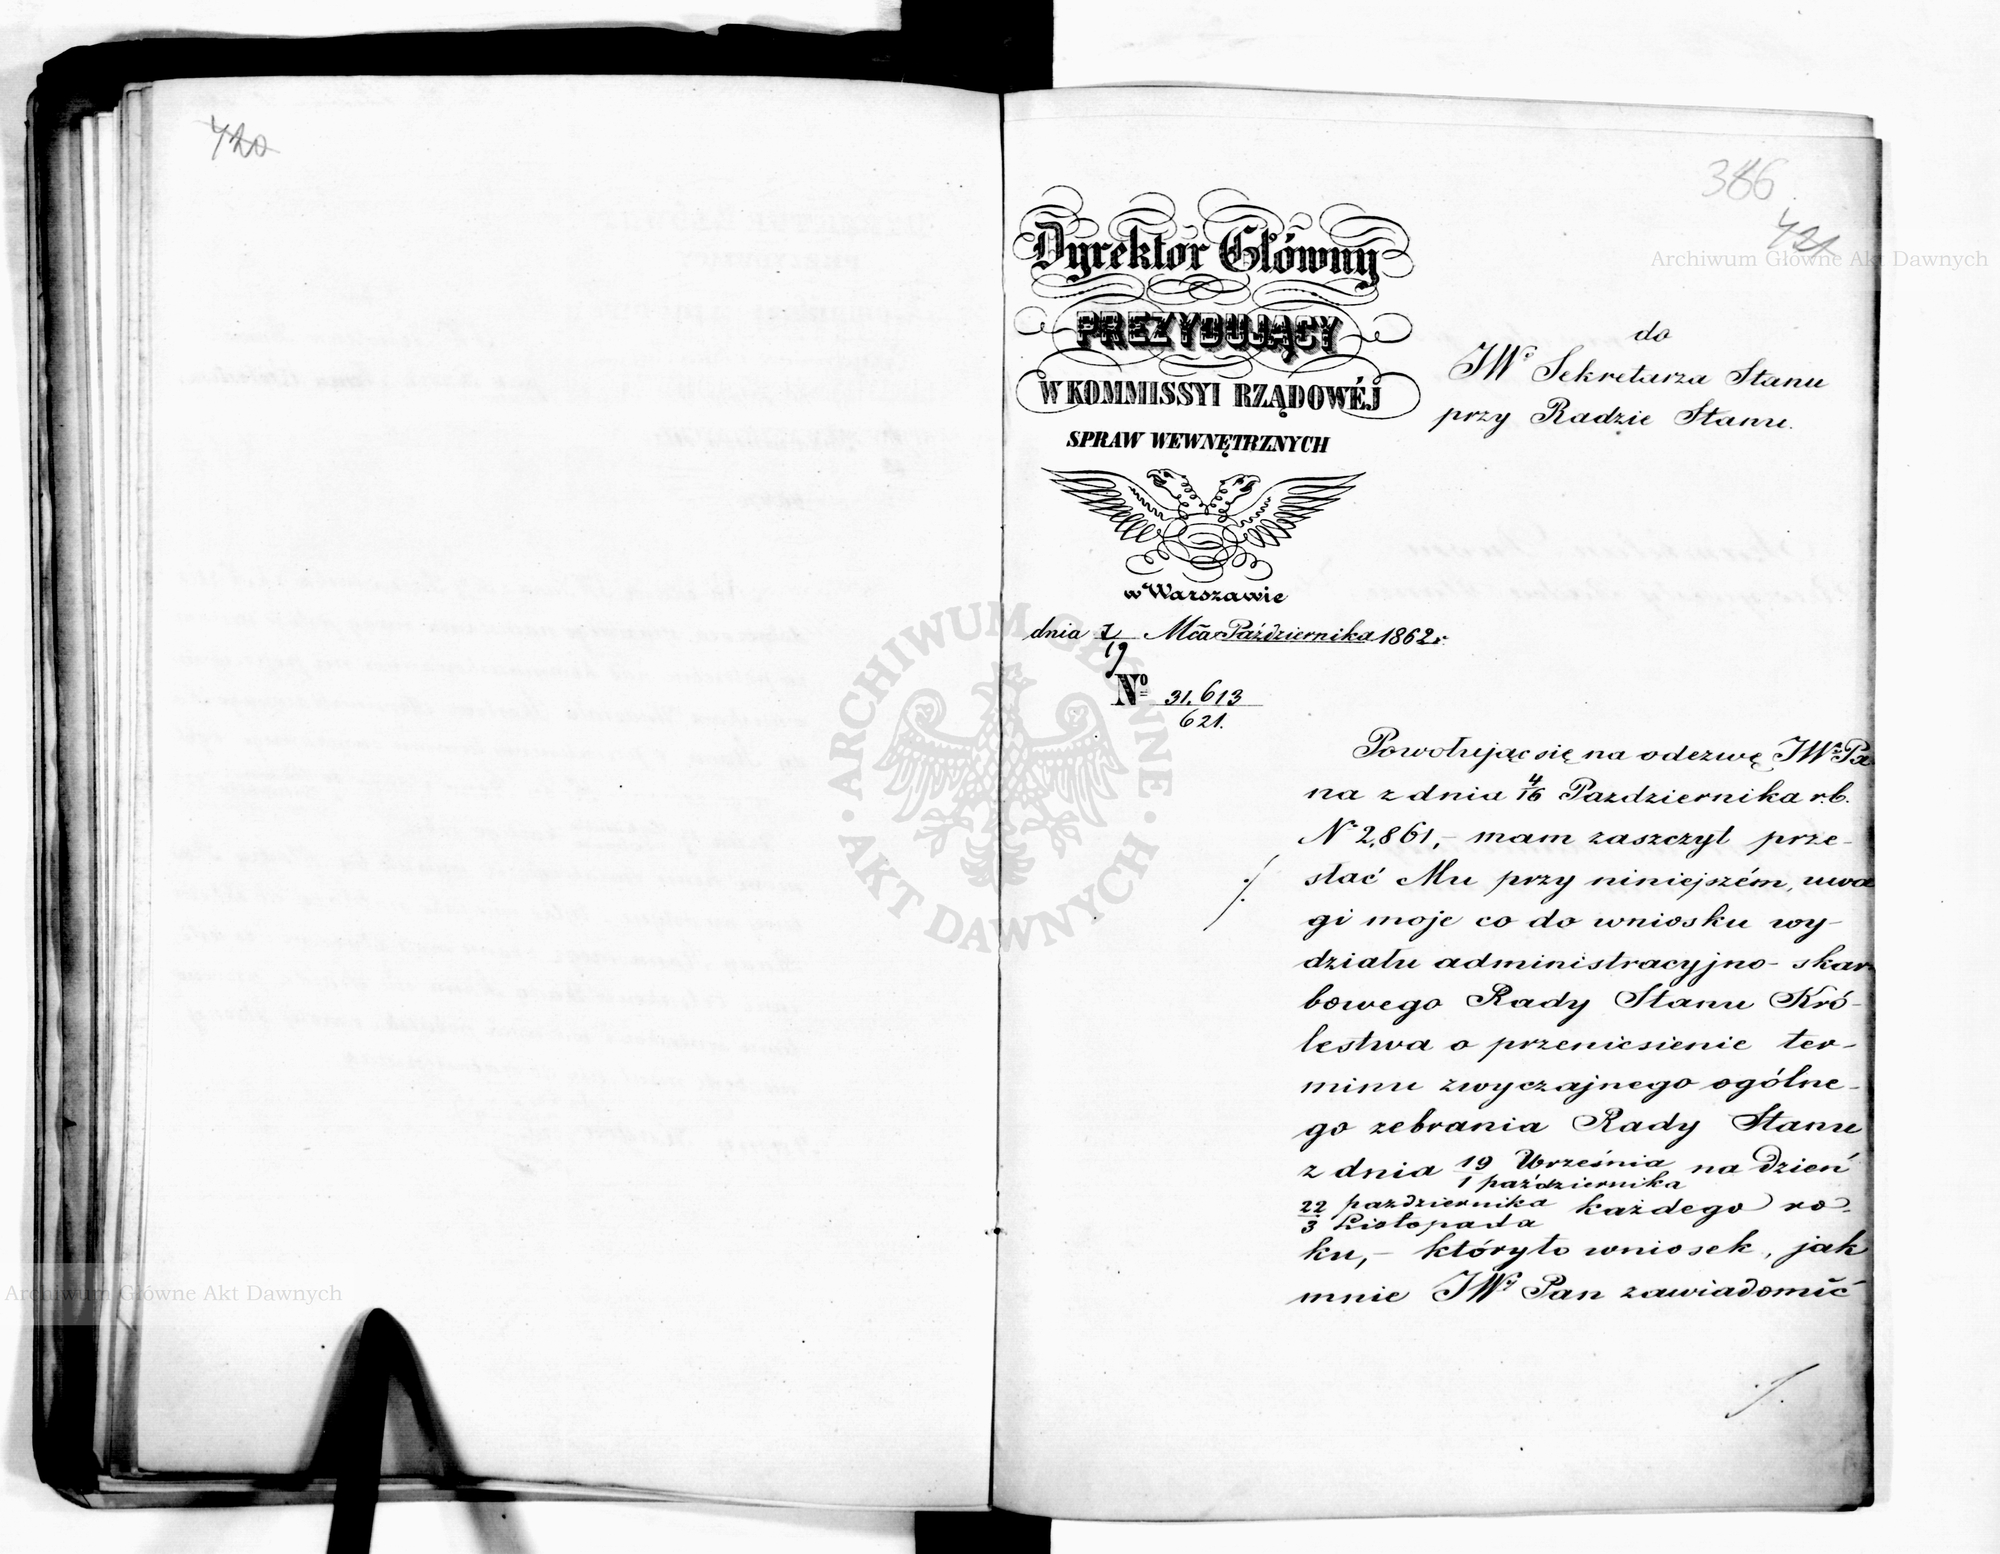 420
386
421
Dyrektor Główny
PREZYDUJĄCY
W KOMMISSYI RZĄDOWÉJ
SPRAW WEWNĘTRZNYCH
w Warszawie
dnia 7/19 Mca Października 1862 r.
No 31,613/621.
do
JWo Sekretarza Stanu
przy Radzie Stanu.
Powołując się na odezwę JWo Pa
na z dnia 4/16 Pazdziernika r.b.
No 2,861,- mam zaszczyt prze-
słać Mu przy niniejszém, uwa
gi moje co do wniosku wy-
działu administracyjno-skar
bowego Rady Stanu Kró-
lestwa o przeniesienie ter-
minu zwyczajnego ogólne-
go zebrania Rady Stanu
z dnia 19 Września/1 października na dzień
22 pazdziernika/3 Listopada każdego ro-
ku,- któryto wniosek, jak
mnie JWy Pan zawiadomić
./.
ARCHIWUM GŁÓWNE · AKT DAWNYCH ·
Archiwum Główne Akt Dawnych
Archiwum Główne Akt Dawnych